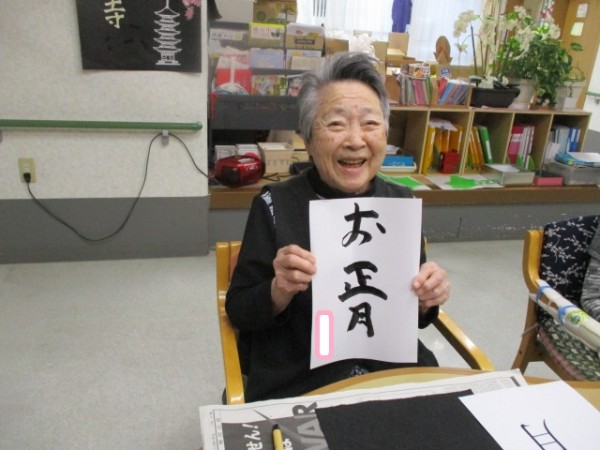 お正月
寺
せん!
WAR